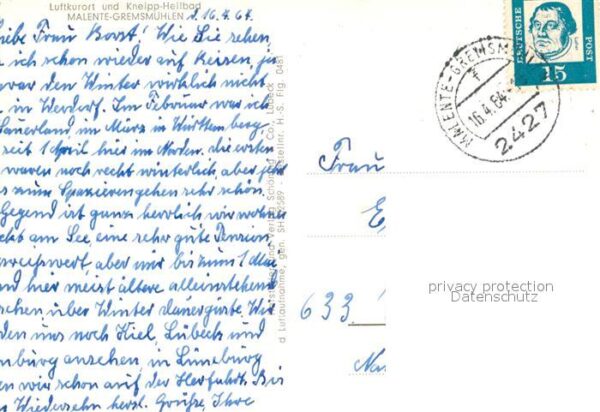 Luftkurort und Kneipp-Heilbad
MALENTE-GREMSMÜHLEN, d. 16.4.64.
iebe Frau Borst! Wie Sie sehen
ich schon wieder auf Reisen, ja
war den Winter wirklich nicht
in Werdorf. Im Februar war ich
Sauerland, im März in Württemberg,
seit 1 April hier im Norden. die ersten
waren noch recht winterlich, aber jetzt
es zum Spazierengehen sehr schön.
Gegend ist ganz herrlich, wir wohnen
am See eine sehr gute Pension
preiswert aber nur bis zum 1 Mai
sind hier meist ältere alleinstehende
schen über Winter dauergäste. Wir
den uns noch Kiel, Lübeck und
burg ansehen, in Lüneburg
en wir schon auf der Herfahrt. Bis
Wiedersehn herzl. Grüße, Ihre
Verlag Schöning & Co., Lübeck
d Luftaufnahme, gen. SH
DEUTSCHE
POST
15
MALENTE-GREMSM
16.4.64
2427
Frau
E
633
privacy protection
Datenschutz